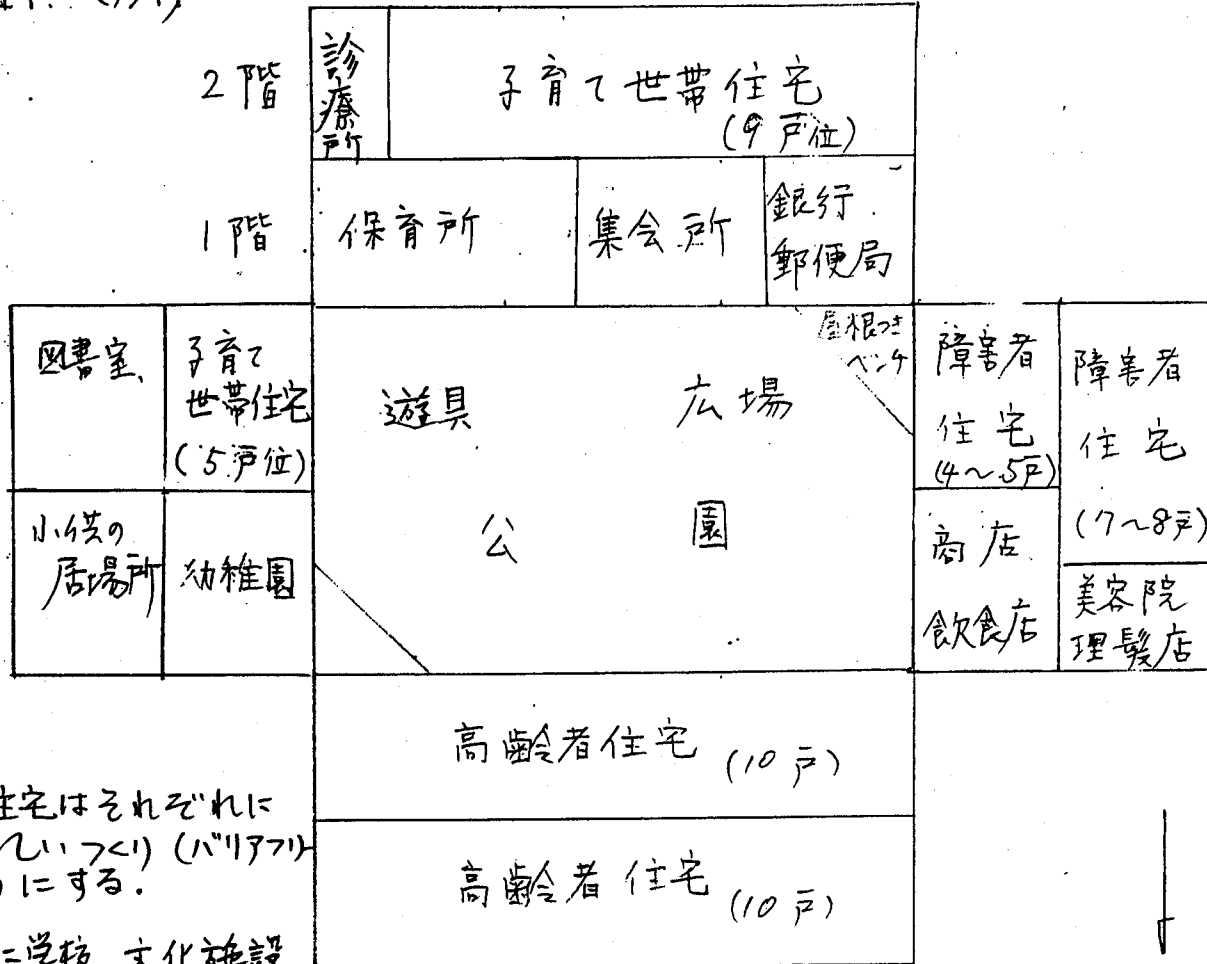 2階
診療所
子育て世帯住宅
(9戸位)
1階
保育所
集会所
銀行
郵便局
図書室
子育て
世帯住宅
(5戸位)
遊具
広場
屋根つき
ベンチ
障害者
住宅
(4〜5戸)
障害者
住宅
(7〜8戸)
小供の
居場所
幼稚園
公園
商店
飲食店
美容院
理髪店
高齢者住宅 (10戸)
高齢者住宅 (10戸)
住宅はそれぞれに
しいつくり (バリアフリ
にする.
学校 文化施設